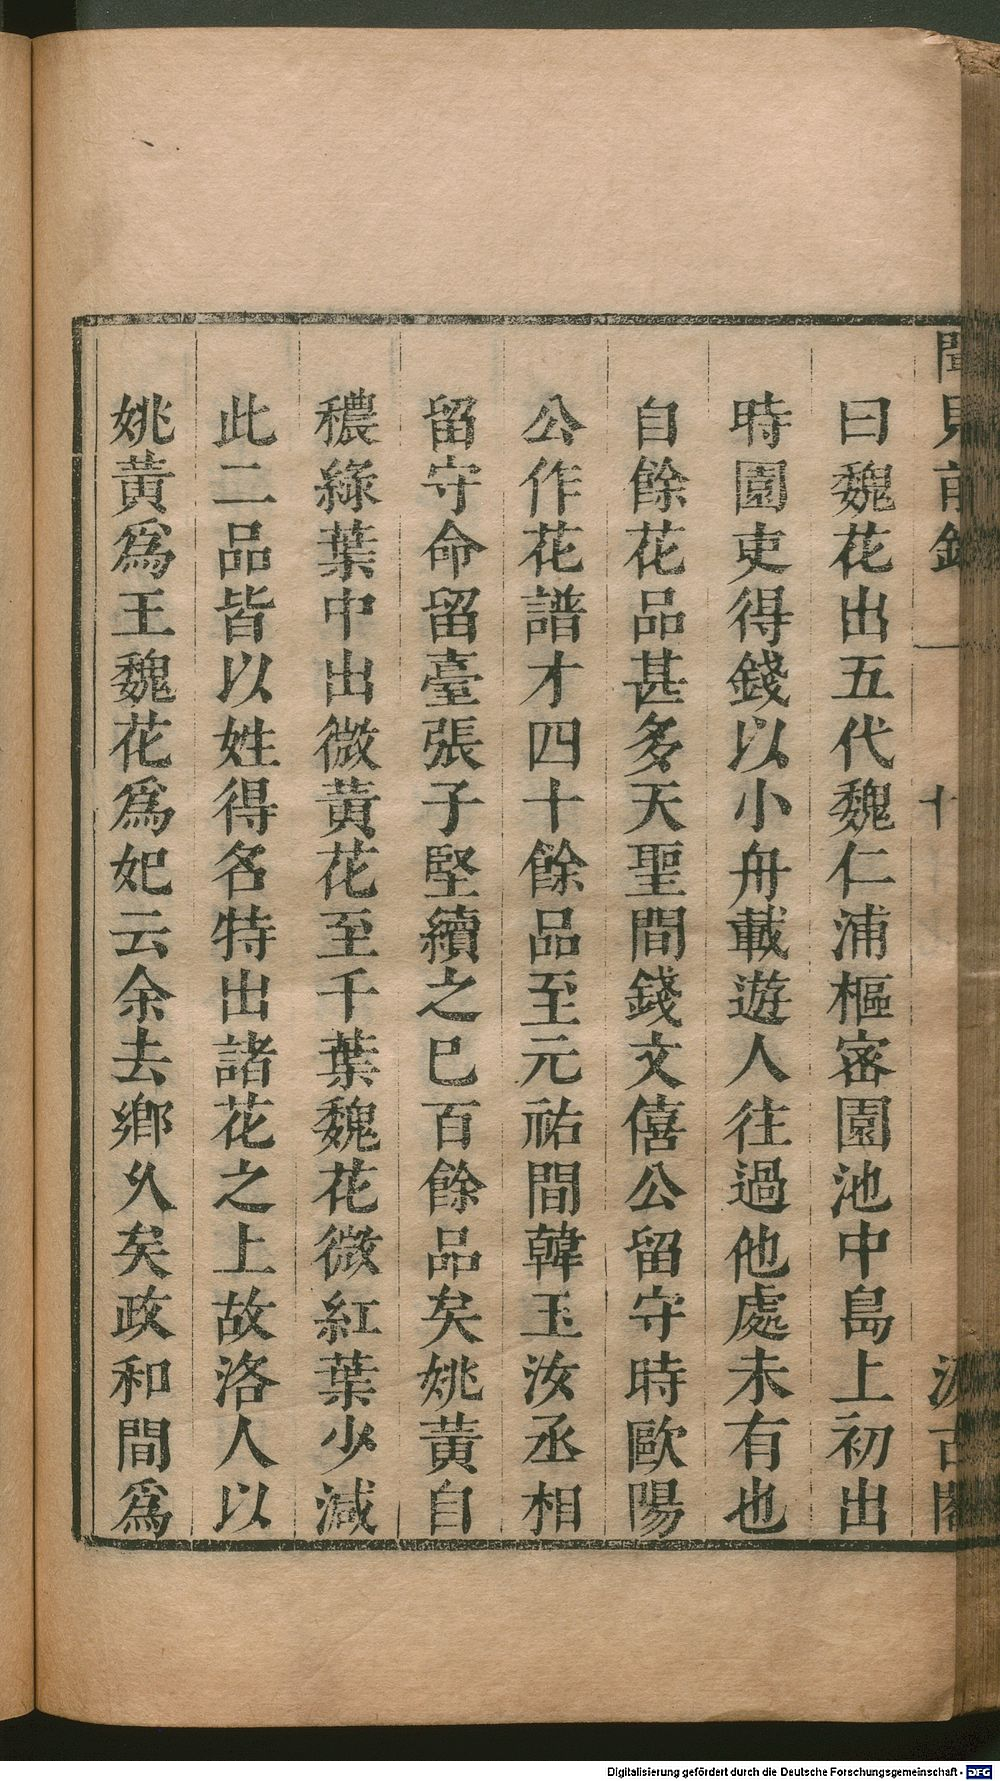 聞見前錄 一 十 汲古閣
曰魏花出五代魏仁浦樞密園池中島上初出
時園吏得錢以小舟載遊人往過他處未有也
自餘花品甚多天聖間錢文僖公留守時歐陽
公作花譜才四十餘品至元祐間韓玉汝丞相
留守命留臺張子堅續之已百餘品矣姚黃自
穠綠葉中出微黃花至千葉魏花微紅葉少減
此二品皆以姓得名特出諸花之上故洛人以
姚黃爲王魏花爲妃云余去鄉久矣政和間爲
Digitalisierung gefördert durch die Deutsche Forschungsgemeinschaft - DFG